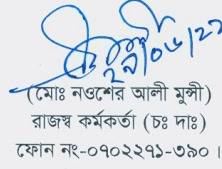 ২৯/০৬/২২
(মোঃ নওশের আলী মুন্সী)
রাজস্ব কর্মকর্তা (চঃ দাঃ)
ফোন নং-০৭০২২৭১-৩৯০।